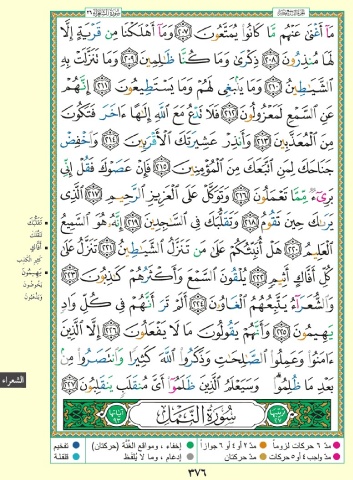 مَا أَغْنَىٰ عَنْهُم مَّا كَانُوا يُمَتَّعُونَ ﴿٢٠٧﴾ وَمَا أَهْلَكْنَا مِن قَرْيَةٍ إِلَّا
لَهَا مُنذِرُونَ ﴿٢٠٨﴾ ذِكْرَىٰ وَمَا كُنَّا ظَالِمِينَ ﴿٢٠٩﴾ وَمَا تَنَزَّلَتْ بِهِ
الشَّيَاطِينُ ﴿٢١٠﴾ وَمَا يَنبَغِي لَهُمْ وَمَا يَسْتَطِيعُونَ ﴿٢١١﴾ إِنَّهُمْ
عَنِ السَّمْعِ لَمَعْزُولُونَ ﴿٢١٢﴾ فَلَا تَدْعُ مَعَ اللَّهِ إِلَٰهًا ءَاخَرَ فَتَكُونَ
مِنَ الْمُعَذَّبِينَ ﴿٢١٣﴾ وَأَنذِرْ عَشِيرَتَكَ الْأَقْرَبِينَ ﴿٢١٤﴾ وَاخْفِضْ
جَنَاحَكَ لِمَنِ اتَّبَعَكَ مِنَ الْمُؤْمِنِينَ ﴿٢١٥﴾ فَإِنْ عَصَوْكَ فَقُلْ إِنِّي
بَرِيءٌ مِّمَّا تَعْمَلُونَ ﴿٢١٦﴾ وَتَوَكَّلْ عَلَى الْعَزِيزِ الرَّحِيمِ ﴿٢١٧﴾ الَّذِي
يَرَاكَ حِينَ تَقُومُ ﴿٢١٨﴾ وَتَقَلُّبَكَ فِي السَّاجِدِينَ ﴿٢١٩﴾ إِنَّهُ هُوَ السَّمِيعُ
الْعَلِيمُ ﴿٢٢٠﴾ هَلْ أُنَبِّئُكُمْ عَلَىٰ مَن تَنَزَّلُ الشَّيَاطِينُ ﴿٢٢١﴾ تَنَزَّلُ عَلَىٰ
كُلِّ أَفَّاكٍ أَثِيمٍ ﴿٢٢٢﴾ يُلْقُونَ السَّمْعَ وَأَكْثَرُهُمْ كَاذِبُونَ ﴿٢٢٣﴾
وَالشُّعَرَاءُ يَتَّبِعُهُمُ الْغَاوُونَ ﴿٢٢٤﴾ أَلَمْ تَرَ أَنَّهُمْ فِي كُلِّ وَادٍ
يَهِيمُونَ ﴿٢٢٥﴾ وَأَنَّهُمْ يَقُولُونَ مَا لَا يَفْعَلُونَ ﴿٢٢٦﴾ إِلَّا الَّذِينَ
ءَامَنُوا وَعَمِلُوا الصَّالِحَاتِ وَذَكَرُوا اللَّهَ كَثِيرًا وَانتَصَرُوا مِن
بَعْدِ مَا ظُلِمُوا وَسَيَعْلَمُ الَّذِينَ ظَلَمُوا أَيَّ مُنقَلَبٍ يَنقَلِبُونَ ﴿٢٢٧﴾
سُورَةُ النَّمْلِ
تَقَلُّبَكَ
تَنَقُّلَكَ
أَفَّاكٍ
كثير الكذب
يَهِيمُونَ
يخوضون
الشعراء
مدّ ٦ حركات لزوماً
مدّ ٢ أو ٤ أو ٦ جوازاً
إخفاء، ومواقع الغُنَّة (حركتان)
تفخيم
مدّ واجب ٤ أو ٥ حركات
مدّ حركتان
إدغام، وما لا يُلفظ
قلقلة
٣٧٦